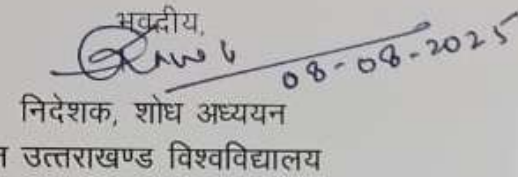 भवदीय,
08-08-2025
निदेशक, शोध अध्ययन
उत्तराखण्ड विश्वविद्यालय